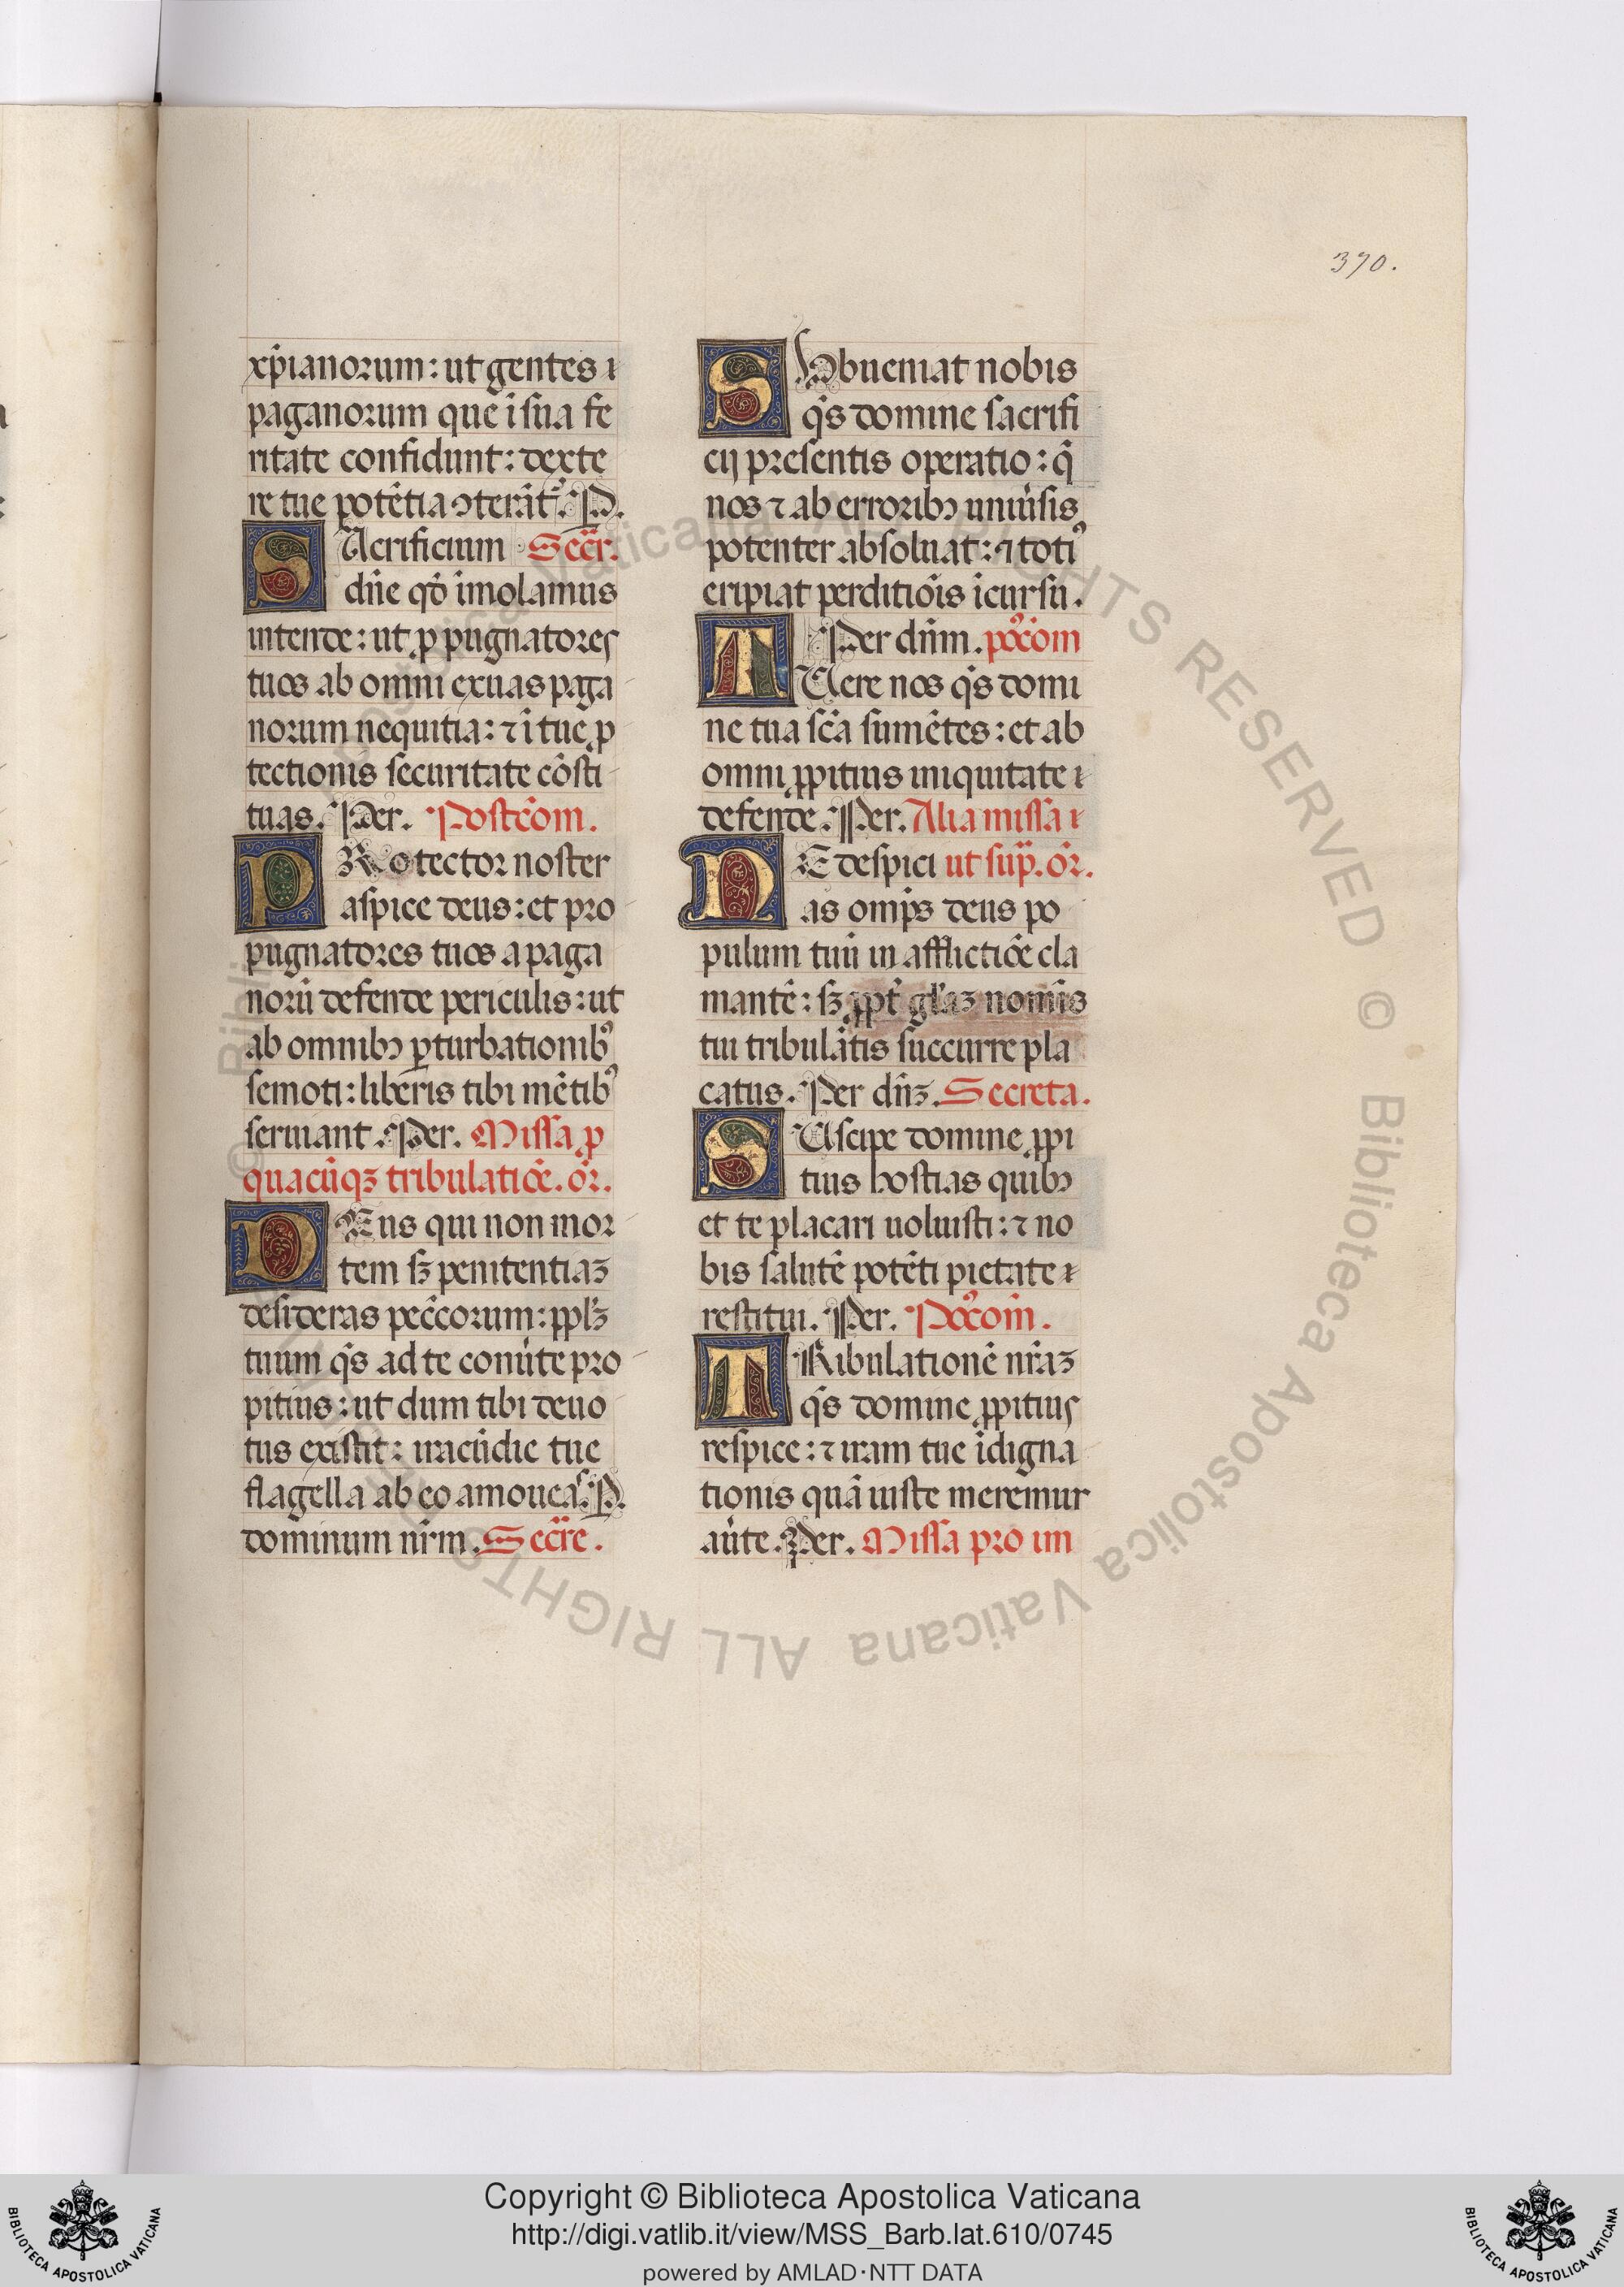 370.
xp̄ianorum: ut gentes
paganorum que ī sua fe
ritate confidunt: dexte
re tue potētia ꝯterāt᷑. P.
SAcrificium Secr̄.
dn̄e qd̄ īmolamus
intende: ut ꝓpugnatores
tuos ab omni exuas paga
norum nequitia: ⁊ ī tue ꝓ
tectionis securitate cōsti
tuas. Per. Postcōm.
PRotector noster
aspice deus: et pro
pugnatores tuos a paga
norū defende periculis: ut
ab omnibꝰ ꝑturbationibꝰ
semoti: liberis tibi mētibꝰ
seruiant. Per. Missa ꝓ
quacūqꝫ tribulatiōe. or̄.
DEus qui non mor
tem sꝫ penitentiaꝫ
desideras pecc̄orum: ppl̄ꝫ
tuum qs̄ ad te conūte pro
pitius: ut dum tibi deuo
tus existit: iracūdie tue
flagella ab eo amoueas. P.
dominum nr̄m. Secr̄e.
SUbueniat nobis
qs̄ domine sacrifi
cij presentis operatio: q̄
nos ⁊ ab erroribꝰ uniūsis
potenter absoluat: ⁊ totiꝰ
eripiat perditiōis īcursu.
Per dn̄m. poꝰcōm
TUere nos qs̄ domi
ne tua sc̄a sumētes: et ab
omni ꝓpitius iniquitate
defende. Per. Alia missa
NE despici ut sup̄. or̄.
as omp̄s deus po
pulum tuū in afflictiōe cla
mantē: sꝫ ꝓpt̄ gl̄aꝫ nomīs
tui tribulātis succurre pla
catus. Per dn̄ꝫ. Secreta.
SUscipe domine ꝓpi
tius hostias quibꝰ
et te placari uoluisti: ⁊ no
bis salutē potēti pietate
restitui. Per. Poꝰcōm.
TRibulationē nr̄aꝫ
qs̄ domine ꝓpitius
respice: ⁊ iram tue īdigna
tionis quā iuste meremur
aūte. Per. Missa pro im
© Biblioteca Apostolica Vaticana ALL RIGHTS RESERVED © Biblioteca Apostolica Vaticana ALL RIGHTS RESERVED
Copyright © Biblioteca Apostolica Vaticana
http://digi.vatlib.it/view/MSS_Barb.lat.610/0745
powered by AMLAD·NTT DATA
BIBLIOTECA APOSTOLICA VATICANA
BIBLIOTECA APOSTOLICA VATICANA